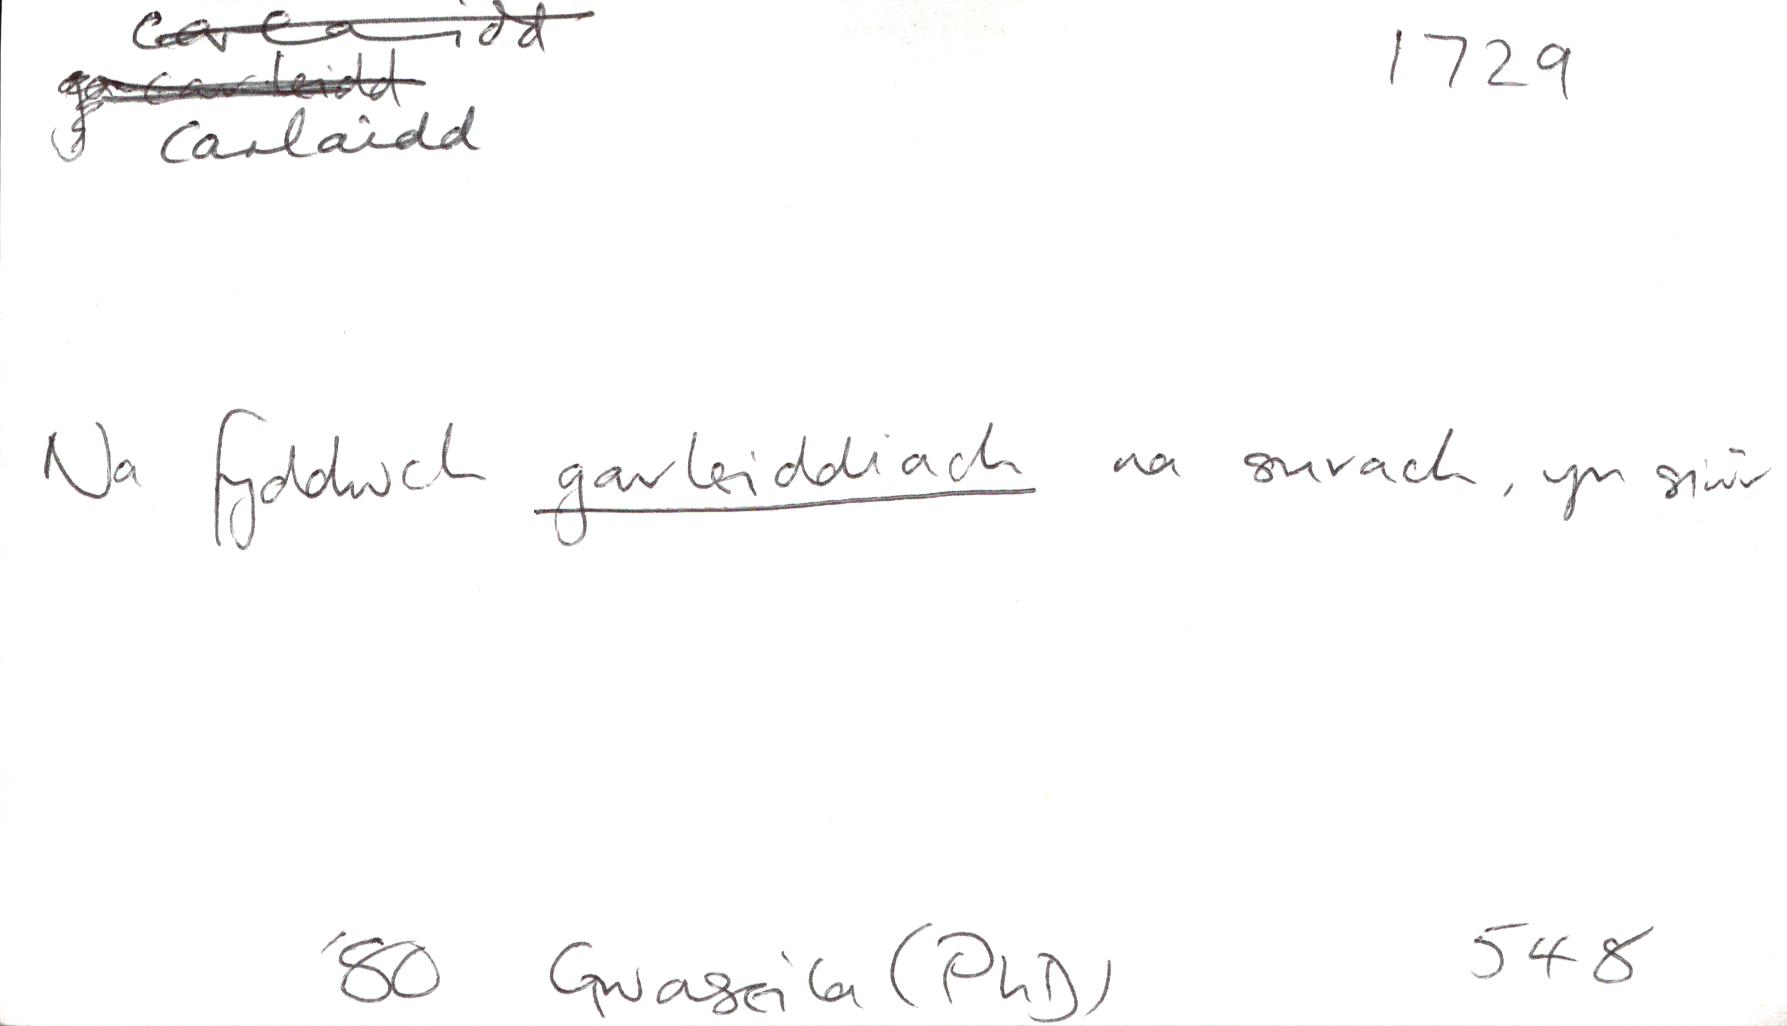 carlaidd 1729
Na fyddwch garleiddiach na surach, yn siŵr
'80 Gwaseila (PhD) 548